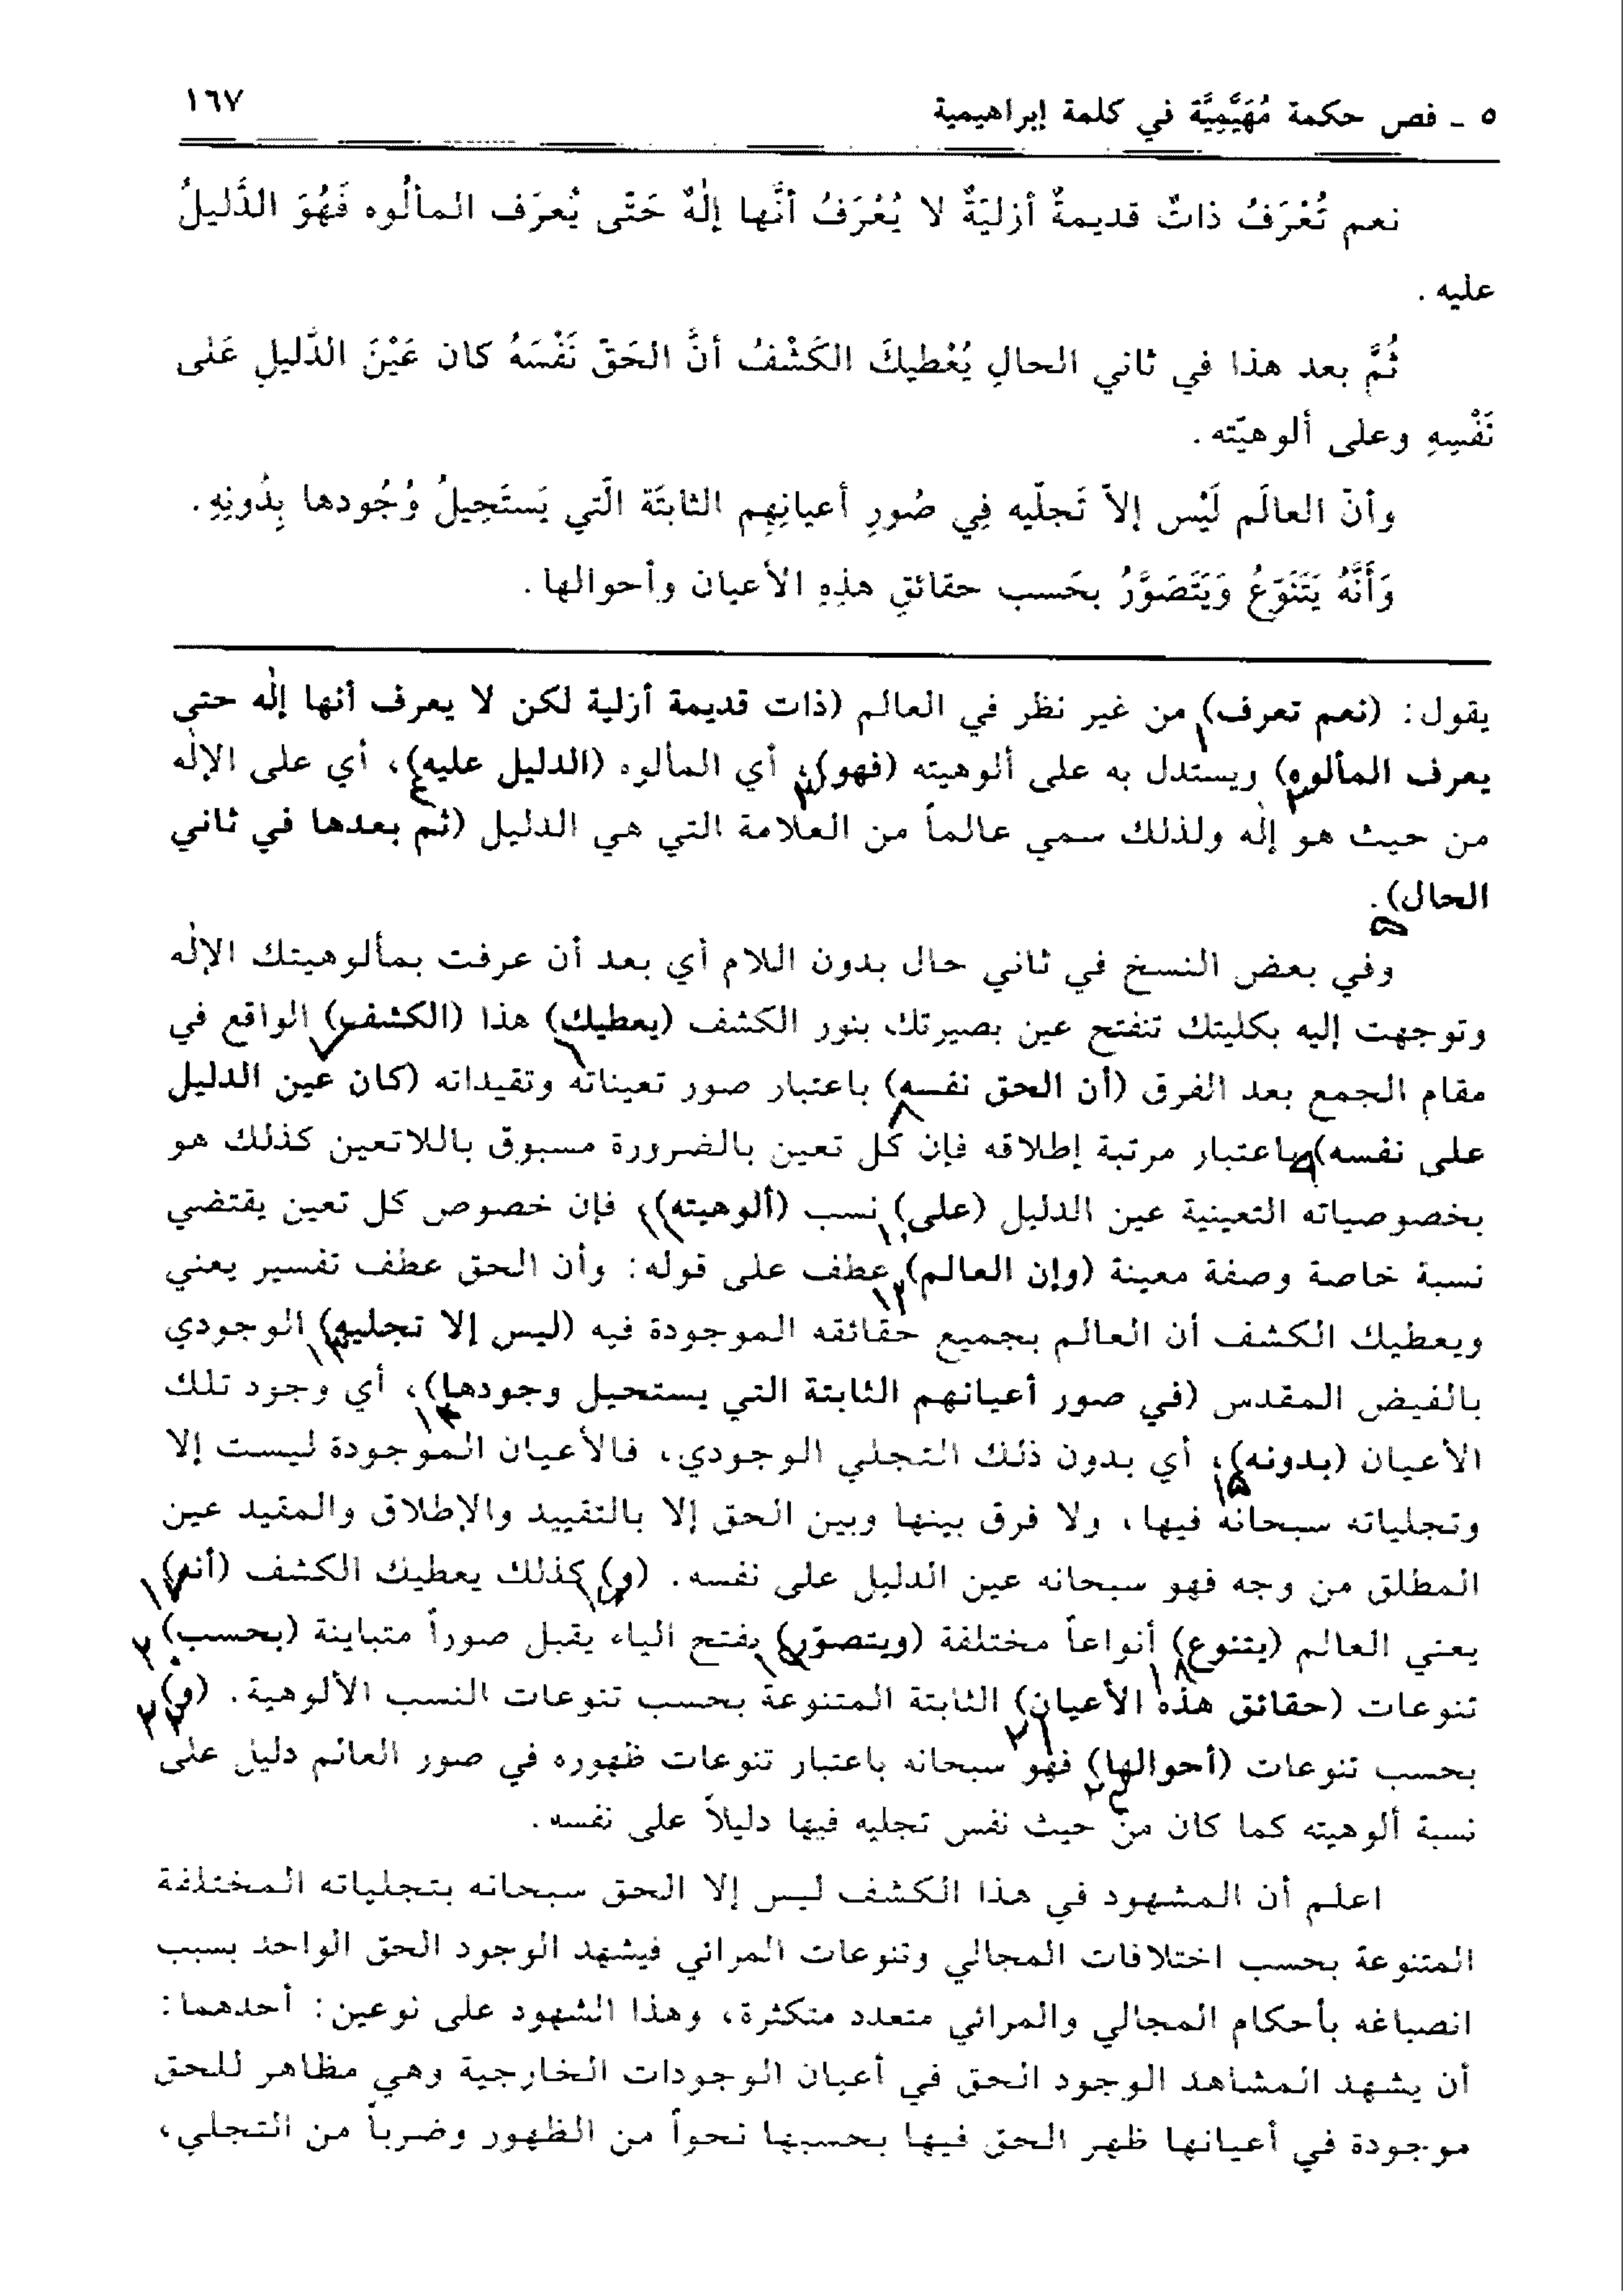 ٥ ـ فص حكمة مُهَيَّمِيَّة في كلمة إبراهيمية
١٦٧
نعم تُعْرَفُ ذاتٌ قديمةٌ أزليّةٌ لا يُعْرَفُ أنَّها إلٰهٌ حَتّى يُعرَف المألُوه فَهُوَ الدَّليلُ
عليه .
ثُمَّ بعد هذا في ثاني الحالِ يُعْطيكَ الكَشْفُ أنَّ الحَقّ نَفْسَهُ كان عَيْنَ الدَّليلِ عَلى
نَفْسِهِ وعلى ألوهيّته .
وأنّ العالَم لَيْس إلاّ تَجلّيه فِي صُورِ أعيانِهِم الثابتَة الّتي يَستَحِيلُ وُجُودها بِدُونِهِ .
وَأَنَّهُ يَتَنَوّعُ وَيَتَصَوَّرُ بحَسب حقائقِ هذِهِ الأعيان وأحوالها .
يقول : (نعم تعرف) من غير نظر في العالم (ذات قديمة أزلية لكن لا يعرف أنها إلٰه حتى
١
يعرف المألوه) ويستدل به على ألوهيته (فهو)، أي المألوه (الدليل عليه)، أي على الإلٰه
٢ ٣ ٤
من حيث هو إلٰه ولذلك سمي عالماً من العلامة التي هي الدليل (ثم بعدها في ثاني
الحال) .
٥
وفي بعض النسخ في ثاني حال بدون اللام أي بعد أن عرفت بمألوهيتك الإلٰه
وتوجهت إليه بكليتك تنفتح عين بصيرتك بنور الكشف (يعطيك) هذا (الكشف) الواقع في
٦ ٧
مقام الجمع بعد الفرق (أن الحق نفسه) باعتبار صور تعيناته وتقيداته (كان عين الدليل
٨
على نفسه) باعتبار مرتبة إطلاقه فإن كل تعين بالضرورة مسبوق باللاتعين كذلك هو
٩
بخصوصياته التعينية عين الدليل (على) نسب (ألوهيته)، فإن خصوص كل تعين يقتضي
١٠ ١١
نسبة خاصة وصفة معينة (وإن العالم) عطف على قوله : وأن الحق عطف تفسير يعني
١٢
ويعطيك الكشف أن العالم بجميع حقائقه الموجودة فيه (ليس إلا تجليه) الوجودي
١٣
بالفيض المقدس (في صور أعيانهم الثابتة التي يستحيل وجودها)، أي وجود تلك
١٤
الأعيان (بدونه)، أي بدون ذلك التجلي الوجودي، فالأعيان الموجودة ليست إلا
١٥
وتجلياته سبحانه فيها، ولا فرق بينها وبين الحق إلا بالتقييد والإطلاق والمقيد عين
المطلق من وجه فهو سبحانه عين الدليل على نفسه . (و) كذلك يعطيك الكشف (أنه)
١٦ ١٧
يعني العالم (يتنوع) أنواعاً مختلفة (ويتصوّر) بفتح الياء يقبل صوراً متباينة (بحسب)
١٨ ١٩ ٢٠
تنوعات (حقائق هذه الأعيان) الثابتة المتنوعة بحسب تنوعات النسب الألوهية . (و)
٢١ ٢٢
بحسب تنوعات (أحوالها) فهو سبحانه باعتبار تنوعات ظهوره في صور العالم دليل على
٢٣
نسبة ألوهيته كما كان من حيث نفس تجليه فيها دليلاً على نفسه .
اعلم أن المشهود في هذا الكشف ليس إلا الحق سبحانه بتجلياته المختلفة
المتنوعة بحسب اختلافات المجالي وتنوعات المرائي فيشهد الوجود الحقّ الواحد بسبب
انصباغه بأحكام المجالي والمرائي متعدد متكثرة، وهذا الشهود على نوعين : أحدهما :
أن يشهد المشاهد الوجود الحق في أعيان الوجودات الخارجية وهي مظاهر للحق
موجودة في أعيانها ظهر الحق فيها بحسبها نحواً من الظهور وضرباً من التجلي،